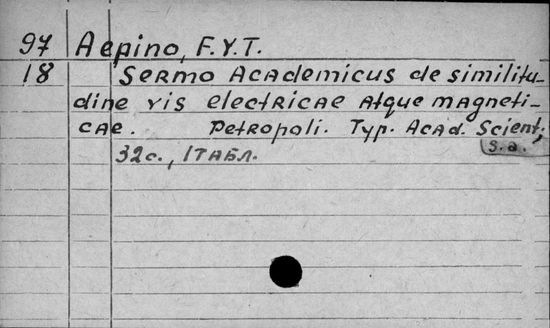 97 Aepino, F.Y.T.
18 Sermo Academicus de similitu-
dine vis electricae atque magneti-
cae. Petropoli. Typ. Acad. Scient.,
s.a.
32с., 1 табл.